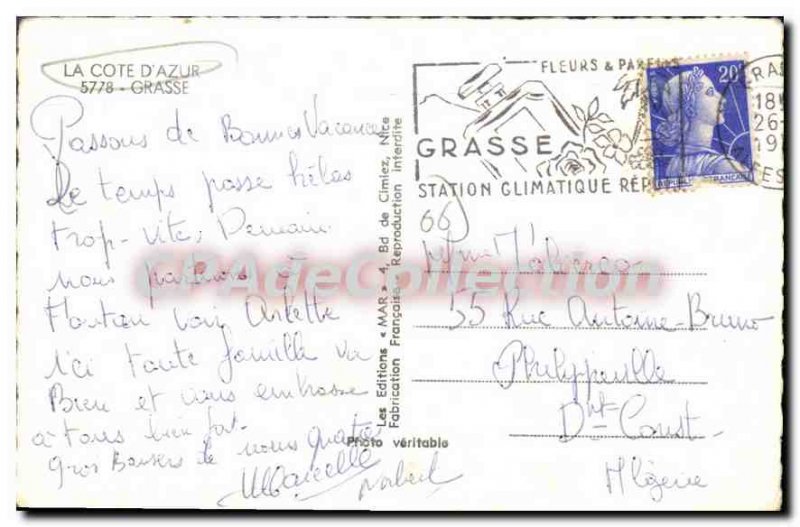 LA COTE D'AZUR
5778 - GRASSE
Passons de Bonnes Vacances
Le temps passe hélas
trop vite, Demain
nous partons à
voir Arlette
Ici toute famille va
Bien et vous embrasse
à tous bien fort.
Gros Baisers de nous quatre
Marcelle
Les Editions « MAR » 4, Bd de Cimiez, Nice
Fabrication Française - Reproduction interdite
Photo véritable
FLEURS & PARFUMS
GRASSE
STATION CLIMATIQUE RÉP
20F
18H
26
19
66
Mme
55 Rue Antoine-Bruno
Philippeville
Dpt Const
Algérie
CPAdeCollection